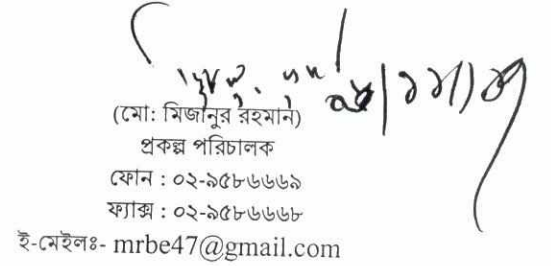 (মো: মিজানুর রহমান)
প্রকল্প পরিচালক
ফোন : ০২-৯৫৮৬৬৬৯
ফ্যাক্স : ০২-৯৫৮৬৬৬৮
ই-মেইলঃ- mrbe47@gmail.com